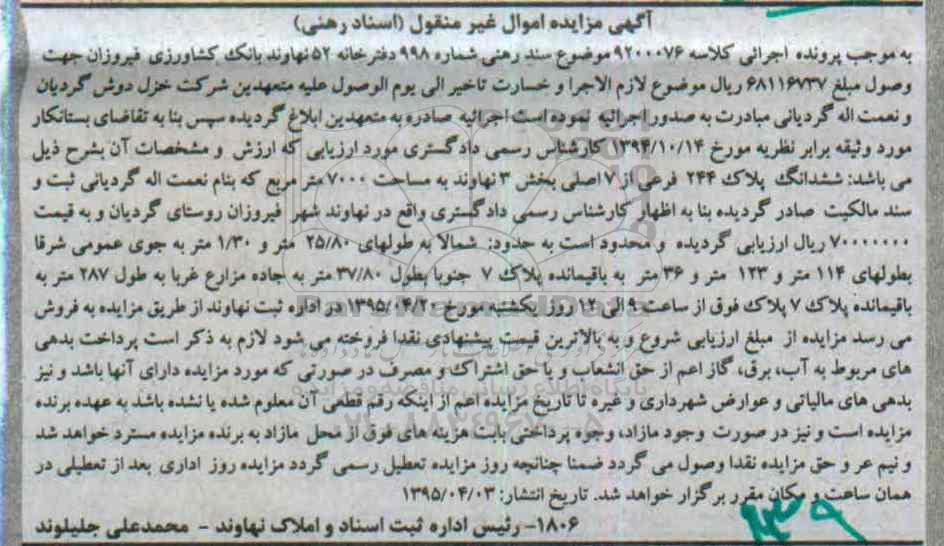 آگهی مزایده اموال غیر منقول (اسناد رهنی)
به موجب پرونده اجرائی کلاسه ۹۲۰۰۰۷۶ موضوع سند رهنی شماره ۹۹۸ دفترخانه ۵۲ نهاوند بانک کشاورزی فیروزان جهت
وصول مبلغ ۶۸۱۱۶۷۳۷ ریال موضوع لازم الاجرا و خسارت تاخیر الی یوم الوصول علیه متعهدین شرکت خزل دوش گردیان
و نعمت اله گردیانی مبادرت به صدور اجرائیه نموده است اجرائیه صادره به متعهدین ابلاغ گردیده سپس بنا به تقاضای بستانکار
مورد وثیقه برابر نظریه مورخ ۱۳۹۴/۱۰/۱۴ کارشناس رسمی دادگستری مورد ارزیابی که ارزش و مشخصات آن بشرح ذیل
می باشد: ششدانگ پلاک ۲۴۴ فرعی از ۷ اصلی بخش ۳ نهاوند به مساحت ۷۰۰۰ متر مربع که بنام نعمت اله گردیانی ثبت و
سند مالکیت صادر گردیده بنا به اظهار کارشناس رسمی دادگستری واقع در نهاوند شهر فیروزان روستای گردیان و به قیمت
۷۰۰۰۰۰۰۰ ریال ارزیابی گردیده و محدود است به حدود: شمالا به طولهای ۲۵/۸۰ متر و ۱/۳۰ متر به جوی عمومی شرقا
بطولهای ۱۱۴ متر و ۱۲۳ متر و ۳۶ متر به باقیمانده پلاک ۷ جنوبا بطول ۳۷/۸۰ متر به جاده مزارع غربا به طول ۲۸۷ متر به
باقیمانده پلاک ۷ پلاک فوق از ساعت ۹ الی ۱۲ روز یکشنبه مورخ ۱۳۹۵/۰۴/۲۰ در اداره ثبت نهاوند از طریق مزایده به فروش
می رسد مزایده از مبلغ ارزیابی شروع و به بالاترین قیمت پیشنهادی نقدا فروخته می شود لازم به ذکر است پرداخت بدهی
های مربوط به آب، برق، گاز اعم از حق انشعاب و یا حق اشتراک و مصرف در صورتی که مورد مزایده دارای آنها باشد و نیز
بدهی های مالیاتی و عوارض شهرداری و غیره تا تاریخ مزایده اعم از اینکه رقم قطعی آن معلوم شده یا نشده باشد به عهده برنده
مزایده است و نیز در صورت وجود مازاد، وجوه پرداختی بابت هزینه های فوق از محل مازاد به برنده مزایده مسترد خواهد شد
و نیم عر و حق مزایده نقدا وصول می گردد ضمنا چنانچه روز مزایده تعطیل رسمی گردد مزایده روز اداری بعد از تعطیلی در
همان ساعت و مکان مقرر برگزار خواهد شد. تاریخ انتشار: ۱۳۹۵/۰۴/۰۳
۱۸۰۶- رئیس اداره ثبت اسناد و املاک نهاوند - محمدعلی جلیلوند